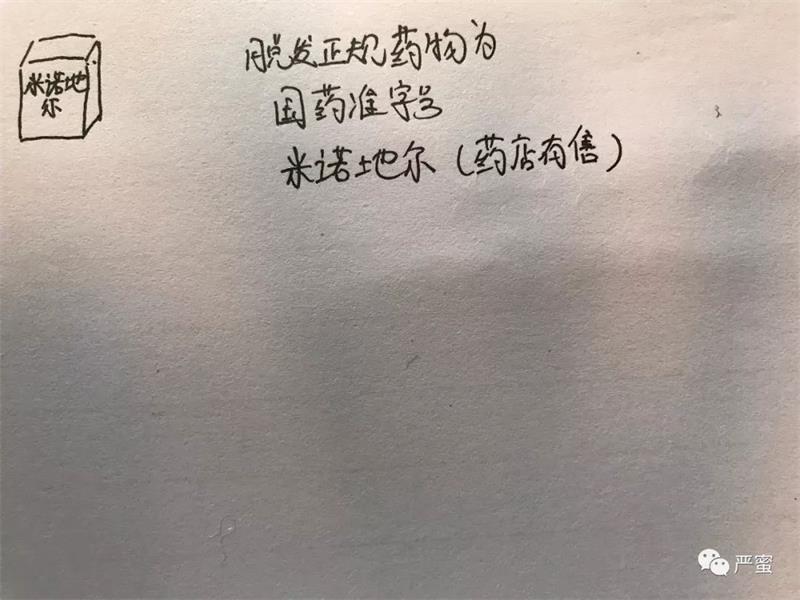 米诺地
尔
脱发正规药物为
国药准字号
米诺地尔（药店有售）
严蜜